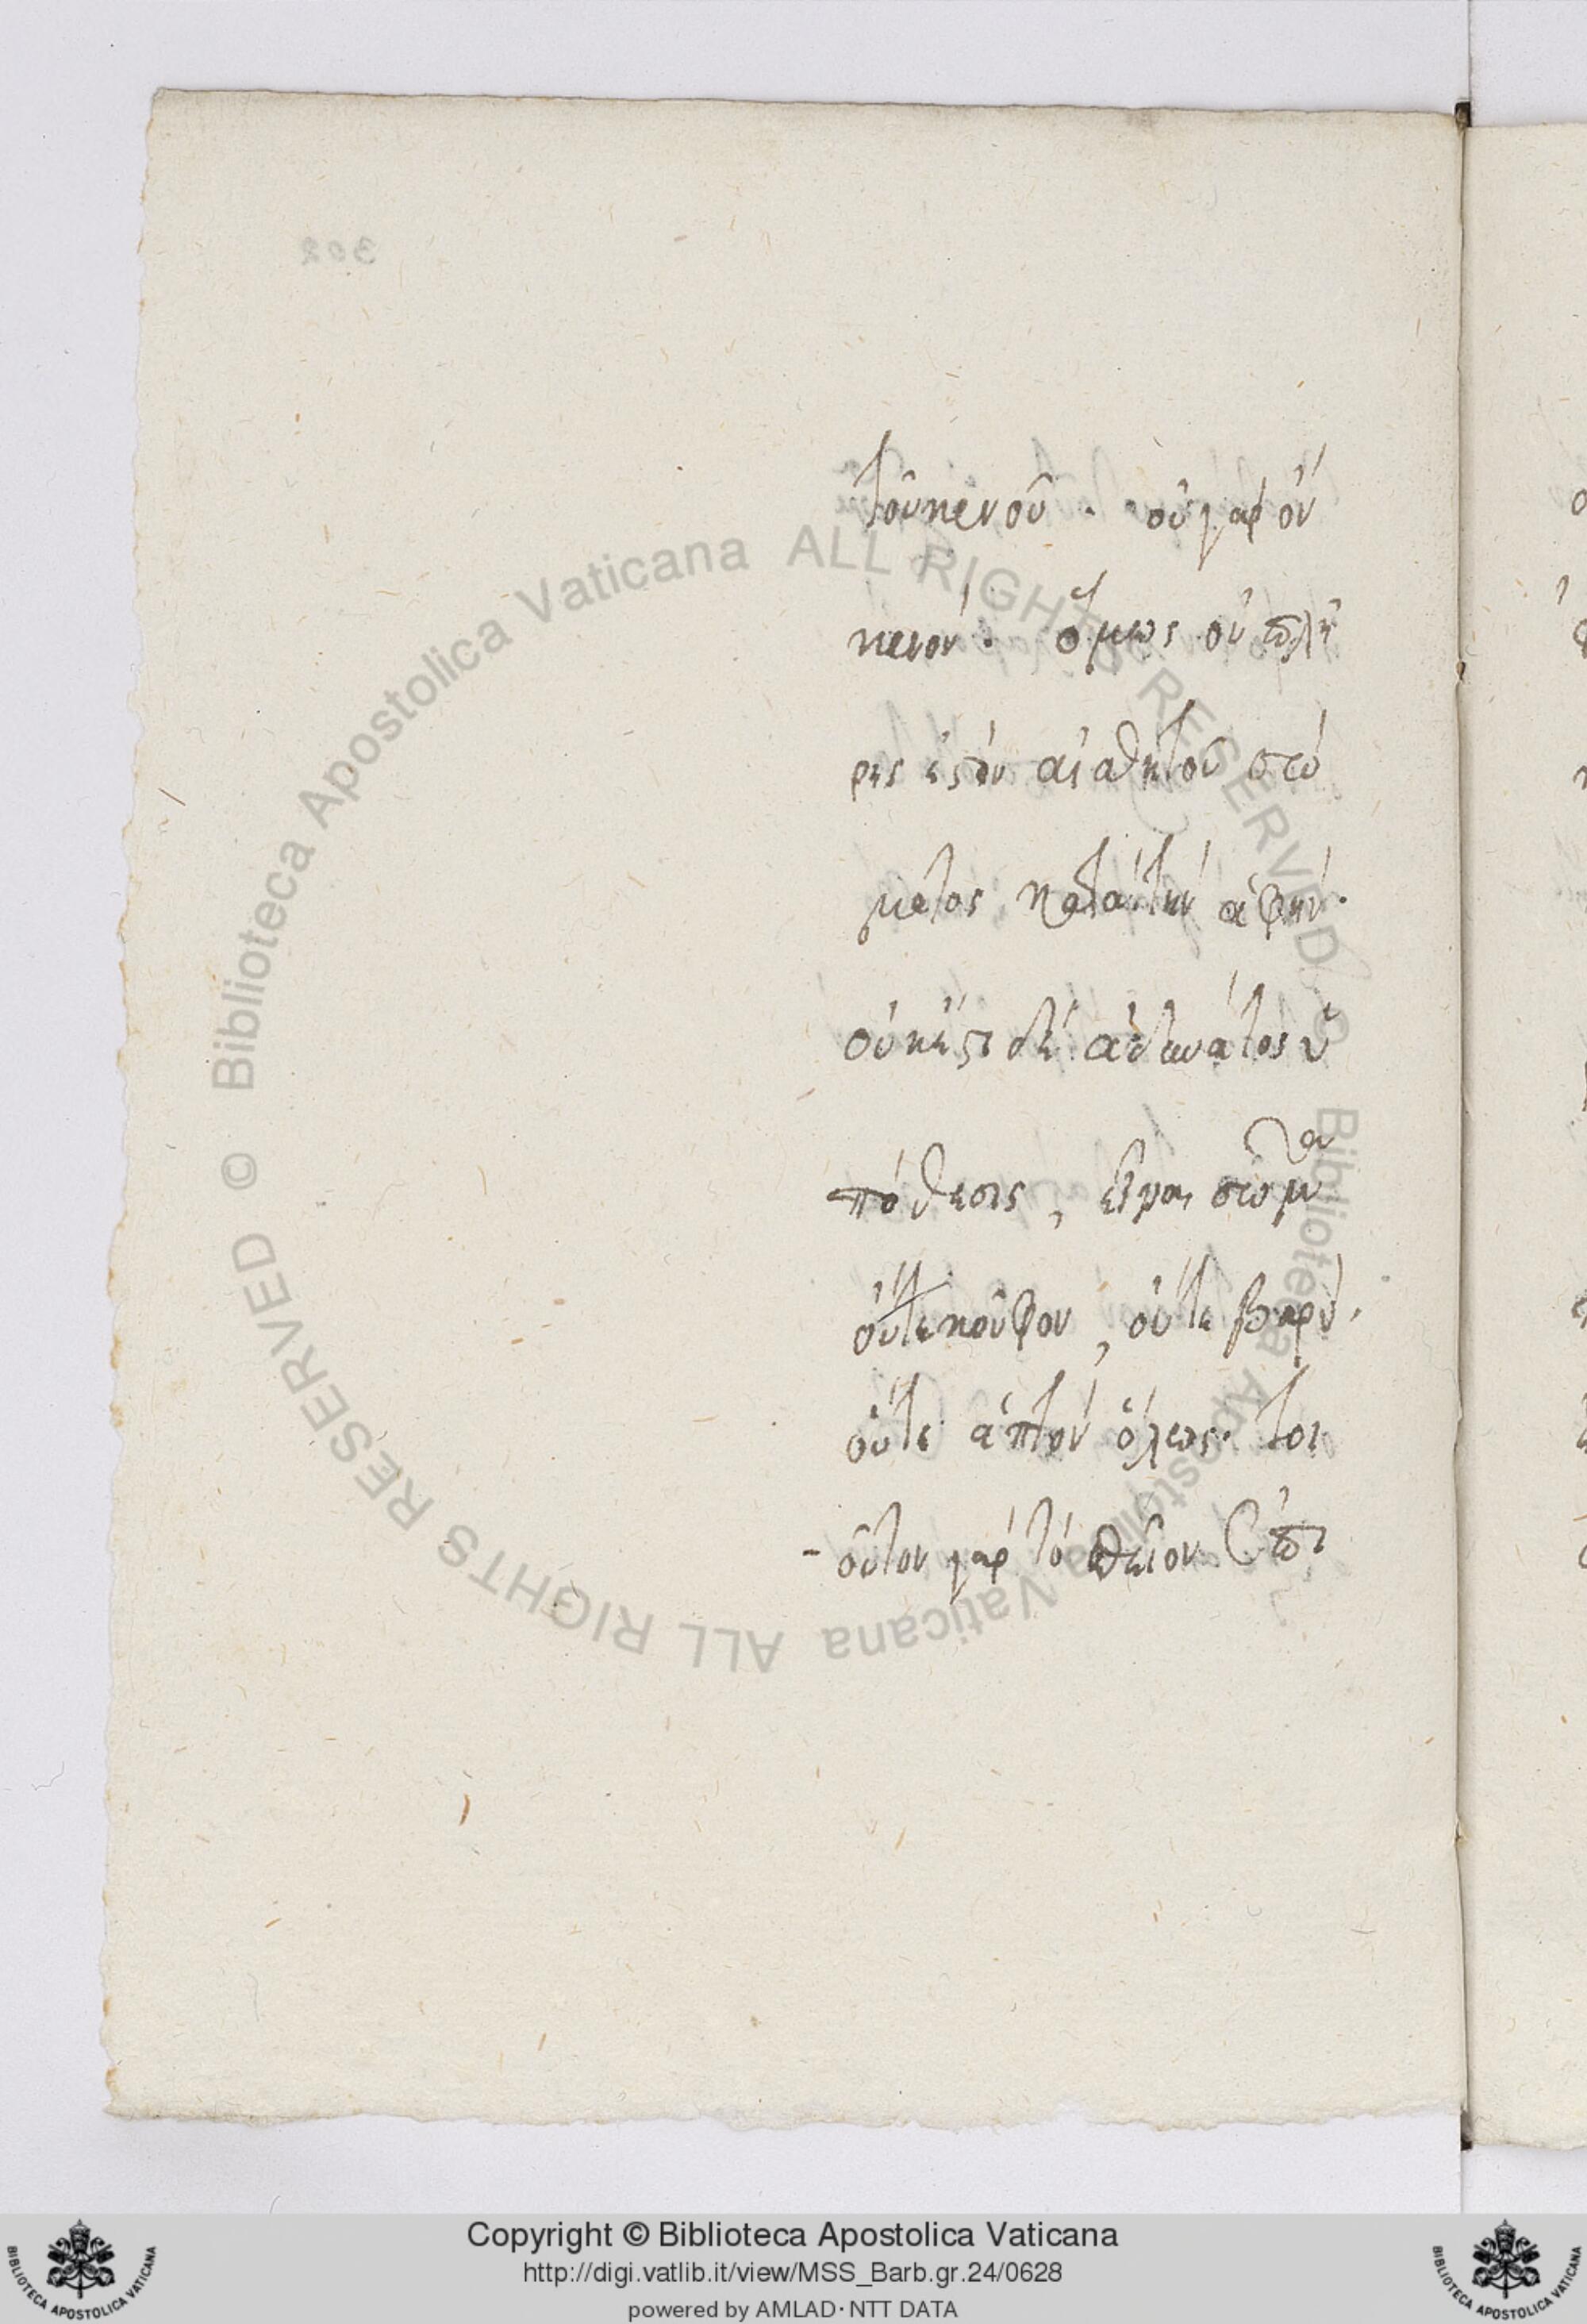 302
τοῦ κενοῦ. οὐ γὰρ ὂν
κενόν. ὅμως οὐ πλῆ
ρες ἐστὶν αἰσθητοῦ σώ
ματος κατὰ τὴν ἁφήν.
οὐκ ἔστι δὲ ἀδύνατος ὑ
πόθεσις, εἶναι σῶμα
οὔτε κοῦφον, οὔτε βαρὺ.
οὔτε ἁπτὸν ὅλως. τοι
οῦτον γὰρ τὸ θεῖον
© Biblioteca Apostolica Vaticana ALL RIGHTS RESERVED © Biblioteca Apostolica Vaticana ALL RIGHTS RESERVED
Copyright © Biblioteca Apostolica Vaticana
http://digi.vatlib.it/view/MSS_Barb.gr.24/0628
powered by AMLAD·NTT DATA
BIBLIOTECA APOSTOLICA VATICANA
BIBLIOTECA APOSTOLICA VATICANA